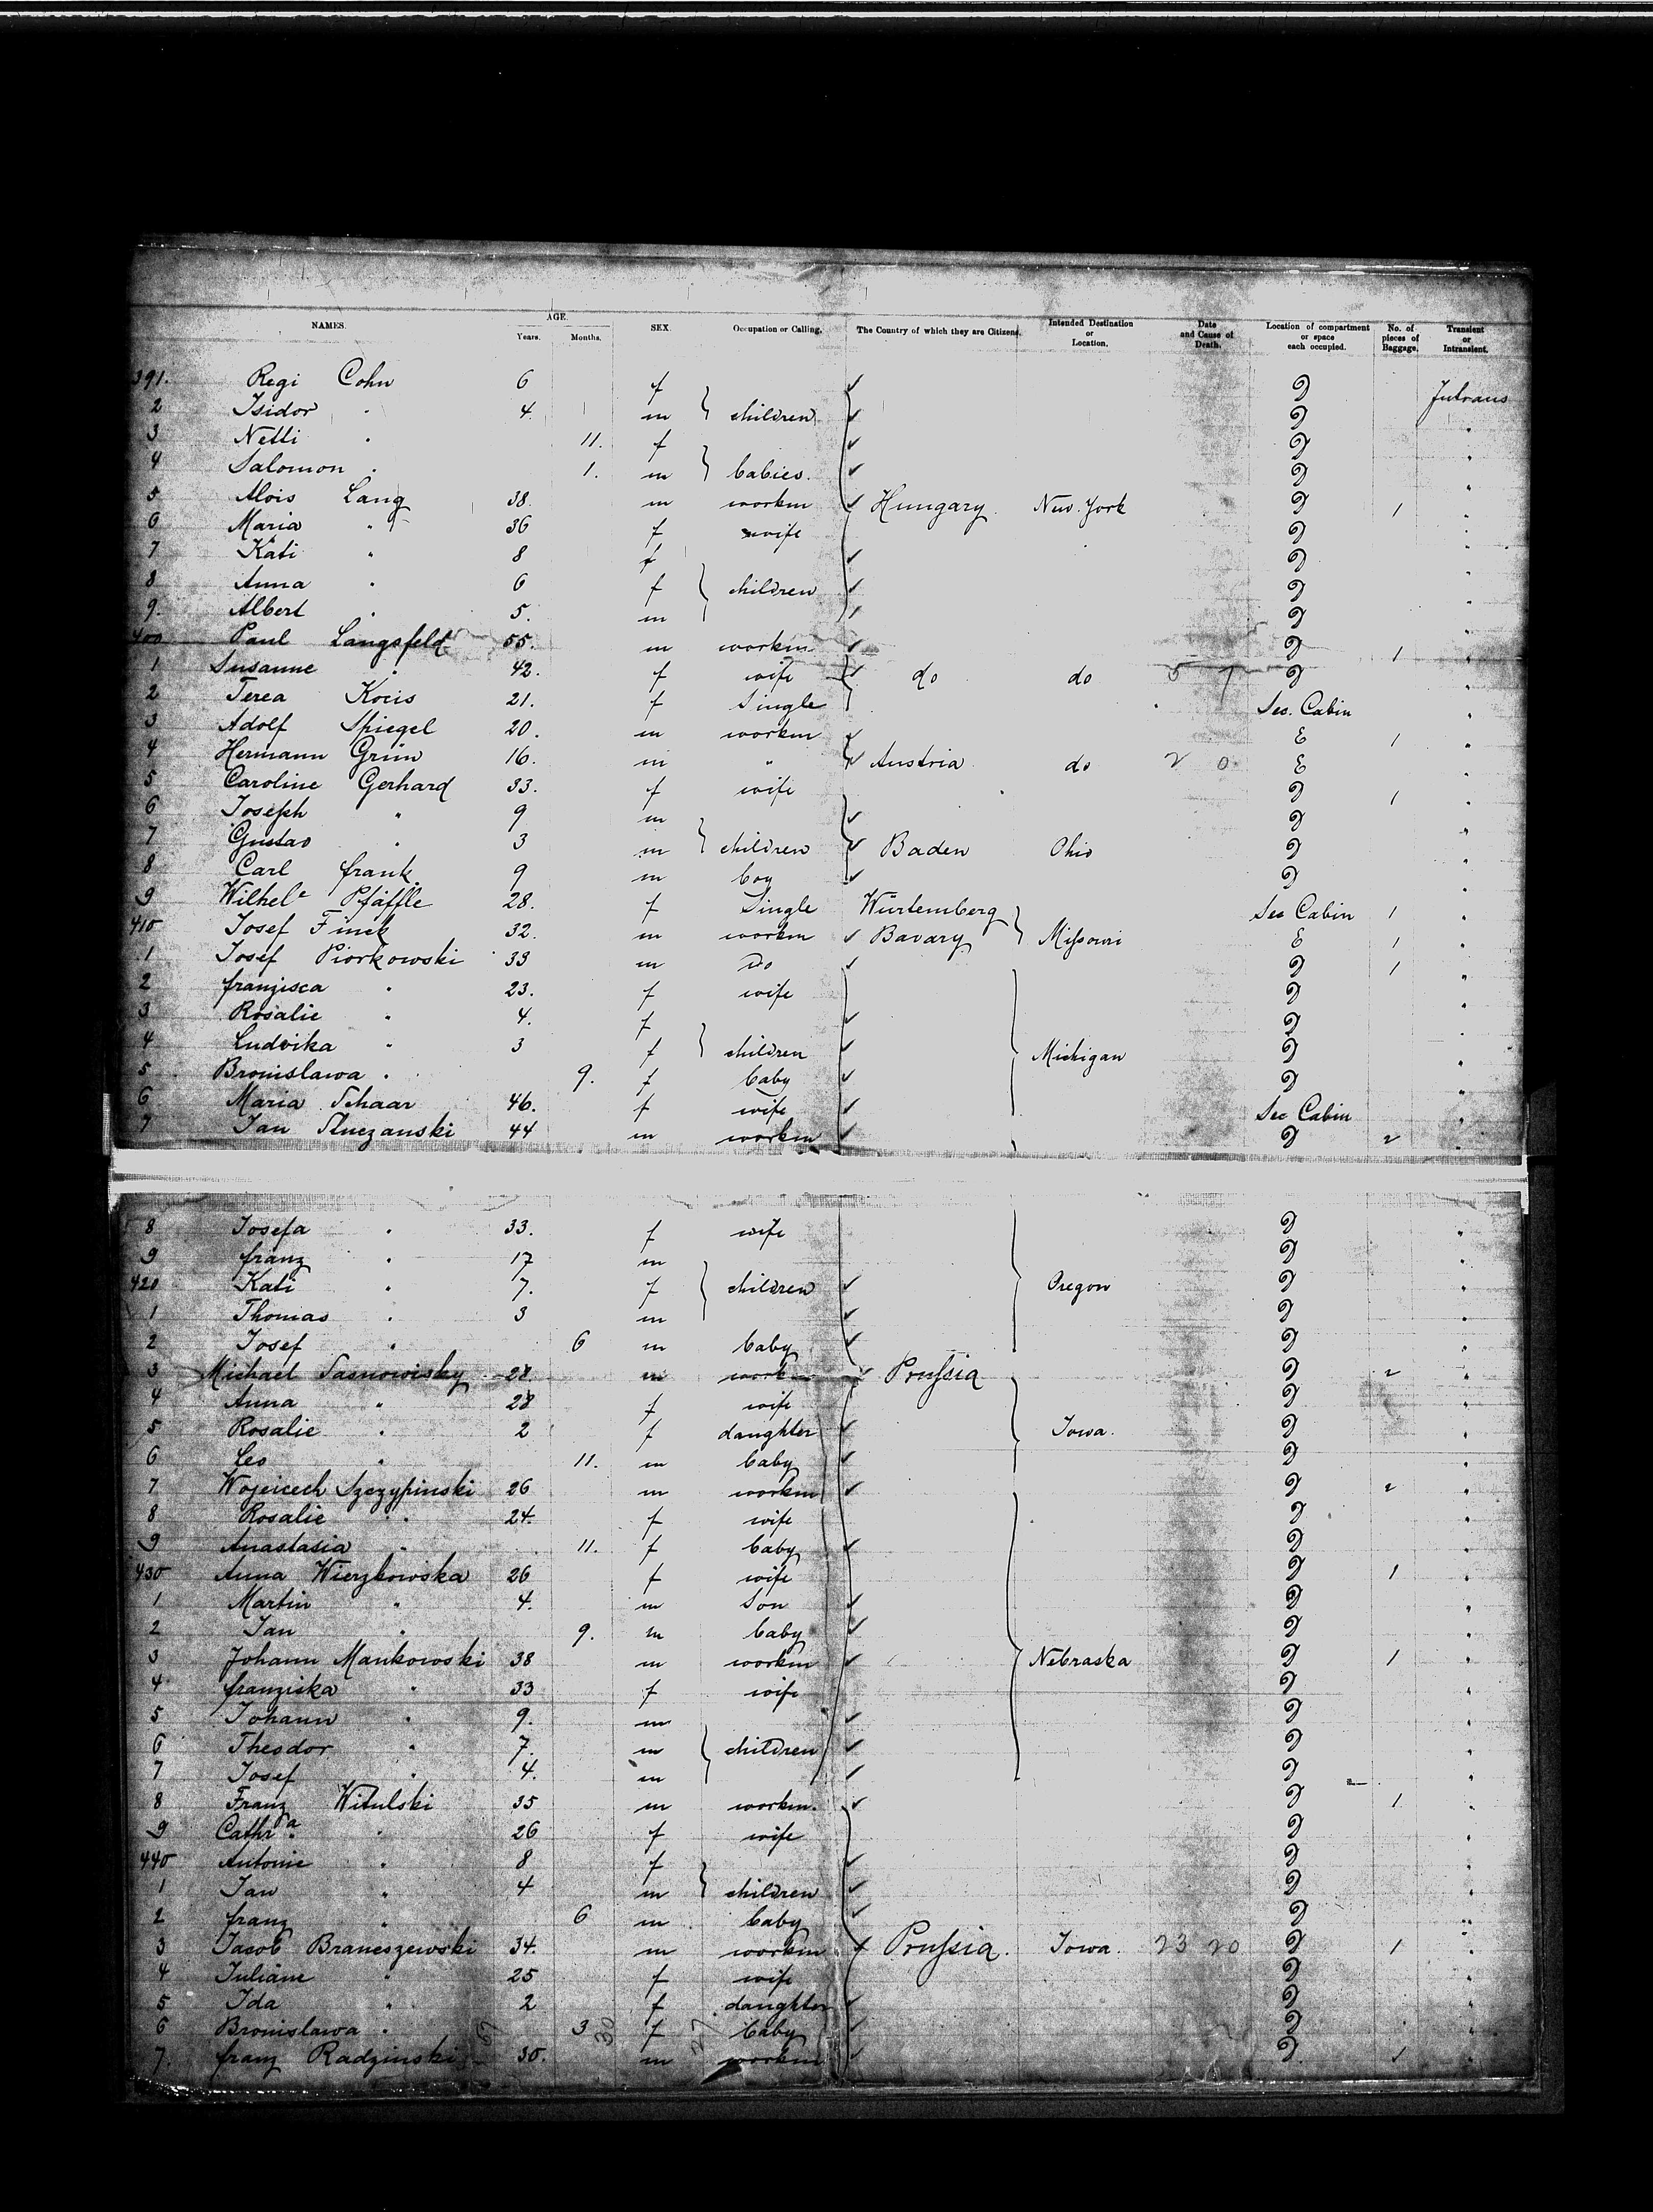 NAMES. AGE. Years. Months. SEX. Occupation or Calling. The Country of which they are Citizens. Intended Destination or Location. Date and Cause of Death. Location of compartment or space each occupied. No. of pieces of Baggage. Transient or Intransient.
391. Regi Cohn 6 f
2 Isidor " 4. m } children "
3 Netti " 11. f "
4 Salomon " 1. m } babies. "
5 Alois Lang 38. m workm Hungary. New. York 1 "
6 Maria " 36 f wife "
7 Kati " 8 f "
8 Anna " 6 f } children "
9. Albert " 5. m "
400 Paul Langsfeld 55. m workm 1 "
1 Susanne " 42. f wife do do 5 7 "
2 Terea Kocis 21. f Single Sec. Cabin "
3 Adolf Spiegel 20. m workm E 1 "
4 Hermann Grün 16. m " Austria do 2 0 E "
5 Caroline Gerhard 33. f wife 1 "
6 Joseph " 9 m "
7 Gustav " 3 m } children Baden Ohio "
8 Carl frank 9 m boy "
9 Wilhele Pfäffle 28. f Single Würtemberg Sec Cabin 1 "
410 Josef Finck 32. m workm Bavary } Missouri E 1 "
1 Josef Piorkowski 33 m do 1 "
2 franzisca " 23. f wife "
3 Rosalie " 4. f "
4 Ludvika " 3 f } children Michigan "
5 Bronislawa " 9. f baby "
6 Maria Schaar 46. f wife Sec Cabin "
7 Jan 44 m workm 2 "
8 Josefa " 33. f wife "
9 franz " 17 m "
420 Kati " 7. f } children Oregon "
1 Thomas " 3 m "
2 Josef " 6 m baby "
3 Michael 28. m workm Prussia 2 "
4 Anna " 28 f wife "
5 Rosalie " 2 f daughter Iowa. "
6 Leo " 11. m baby "
7 Wojeicech Szczypinski 26 m workm 2 "
8 Rosalie " 24. f wife "
9 Anastasia " 11. f baby "
430 Anna Wierzbowska 26 f wife 1 "
1 Martin " 4. m Son "
2 Jan " 9. m baby "
3 Johann Mankowski 38 m workm Nebraska 1 "
4 franziska " 33 f wife "
5 Johann " 9. m "
6 Theodor " 7. m } children "
7 Josef " 4. m "
8 Franz Witulski 35 m workm. 1 "
9 Cathra " 26 f wife "
440 Antonie " 8 f "
1 Jan " 4 m } children "
2 franz " 6 m baby "
3 Jacob Braneszewski 34. m workm Prussia. Iowa. 23 20 1 "
4 Juliane " 25 f wife "
5 Ida " 2 f daughter "
6 Bronislawa " 3 f baby "
7. franz Radzinski 30. m workm 1 "